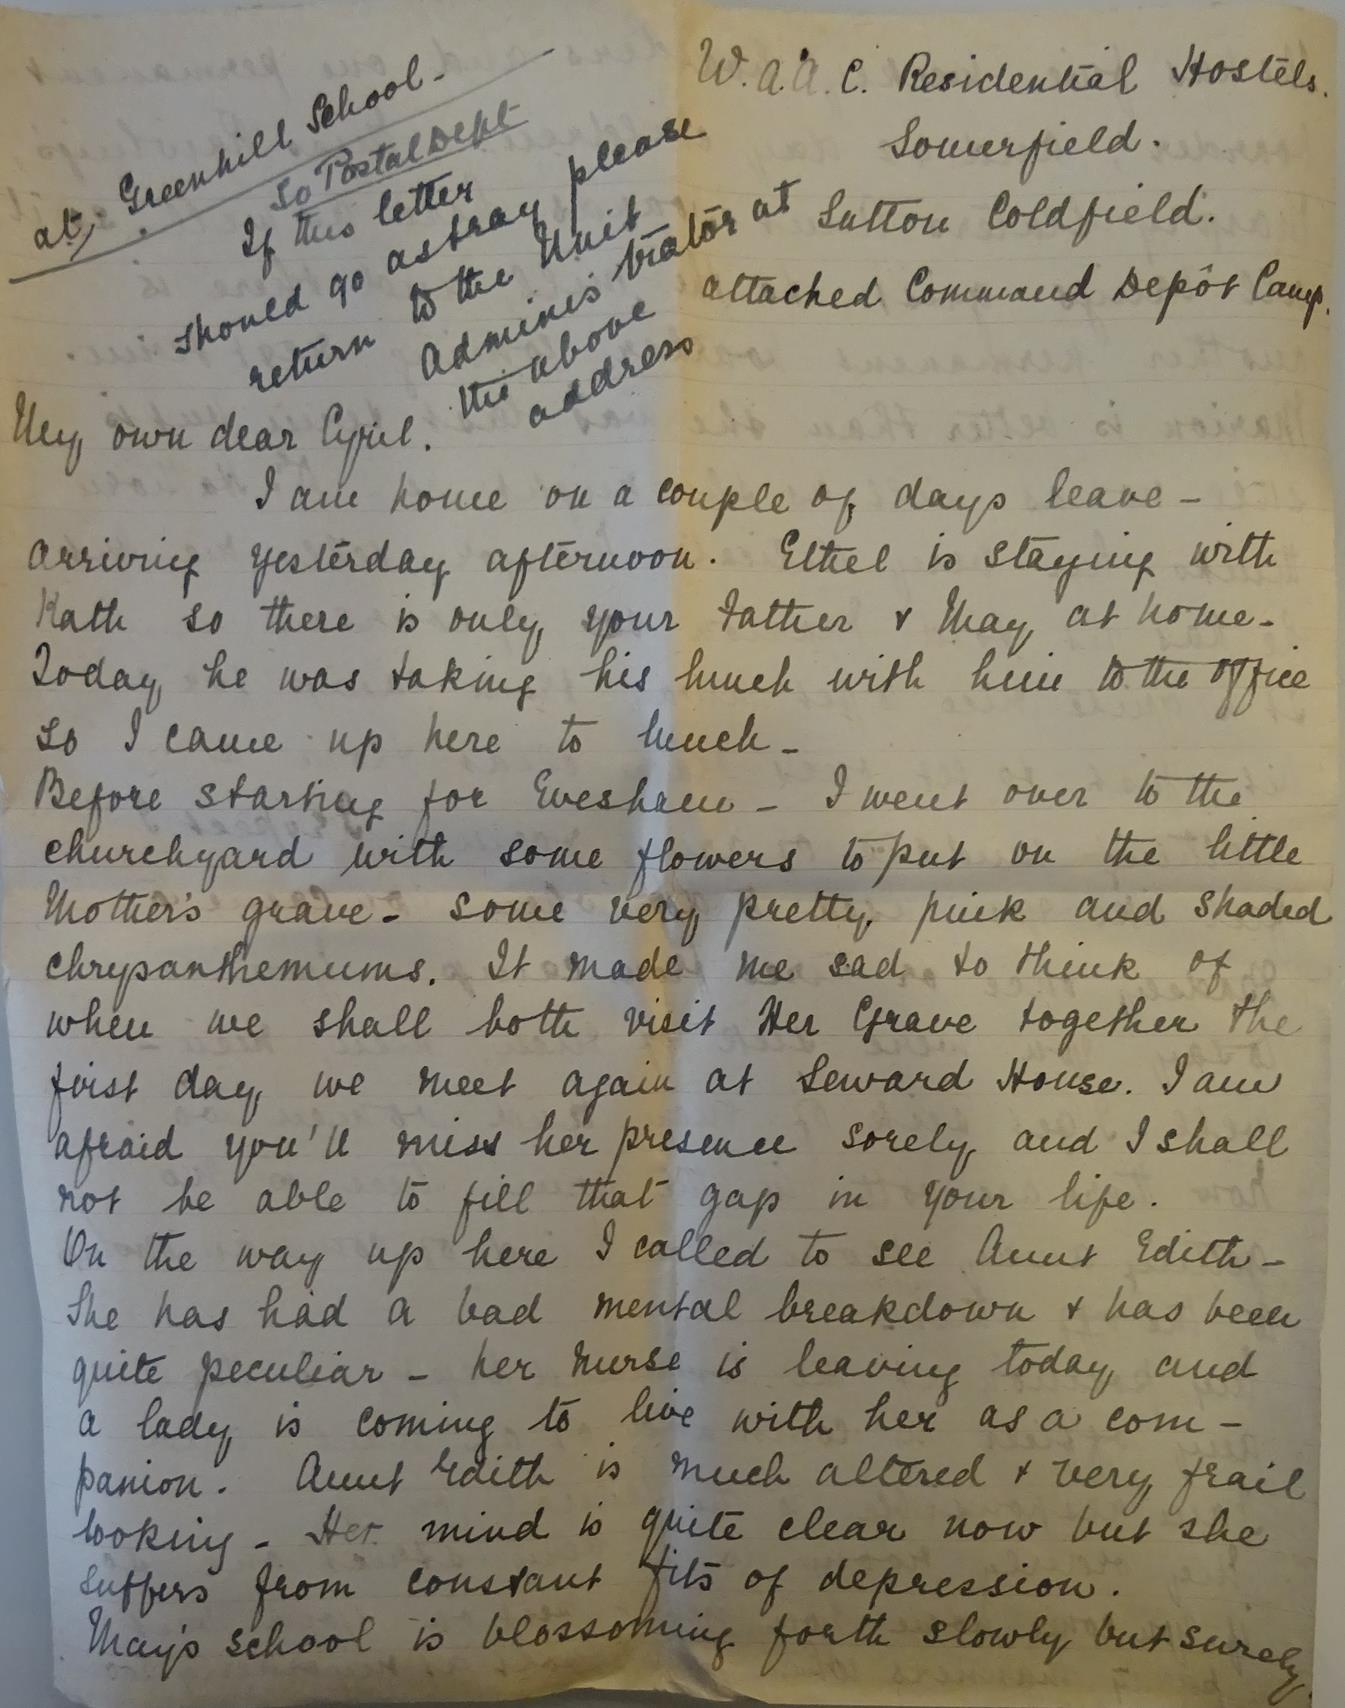 W.A.A.C. Residential Hostels.
Somerfield.
Sutton Coldfield.
attached Command Depôt Camp.
at, Greenhill School -
So Postal Dept
If this letter
should go astray please
return to the Unit
Administrator at
the above
address
My own dear Cyril.
I am home on a couple of days leave -
arriving yesterday afternoon. Ethel is staying with
Kath so there is only your Father & May at home -
Today he was taking his lunch with him to the office
so I came up here to lunch -
Before starting for Evesham - I went over to the
churchyard with some flowers to put on the little
Mother's grave - some very pretty pink and shaded
chrysanthemums. It made me sad to think of
when we shall both visit Her Grave together the
first day we meet again at Seward House. I am
afraid you'll miss her presence sorely and I shall
not be able to fill that gap in your life.
On the way up here I called to see Aunt Edith -
She has had a bad mental breakdown & has been
quite peculiar - her nurse is leaving today and
a lady is coming to live with her as a com -
panion. Aunt Edith is much altered & very frail
looking - Her mind is quite clear now but she
suffers from constant fits of depression.
May's school is blossoming forth slowly but surely.